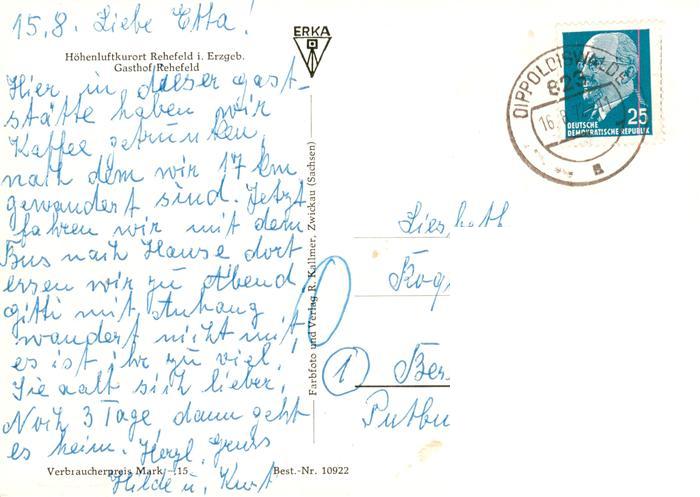 15.8. Liebe Etta!
ERKA
Höhenluftkurort Rehefeld i. Erzgeb.
Gasthof Rehefeld
Hier in dieser Gast-
stätte haben wir
Kaffee getrunken,
nach dem wir 17 km
gewandert sind. Jetzt
fahren wir mit dem
Bus nach Hause dort
essen wir zu Abend,
gitti mit Anhang
wandert nicht mit,
es ist ihr zu viel!
Sie aalt sich lieber.
Noch 3 Tage, dann geht
es heim. Herzl. Gruss
Hilde u. Kurt
Verbraucherpreis Mark -.15
Best.-Nr. 10922
Farbfoto und Verlag R. Kallmer, Zwickau (Sachsen)
DIPPOLDISWALDE
823
16.8.
25
DEUTSCHE
DEMOKRATISCHE REPUBLIK
1
Putbu